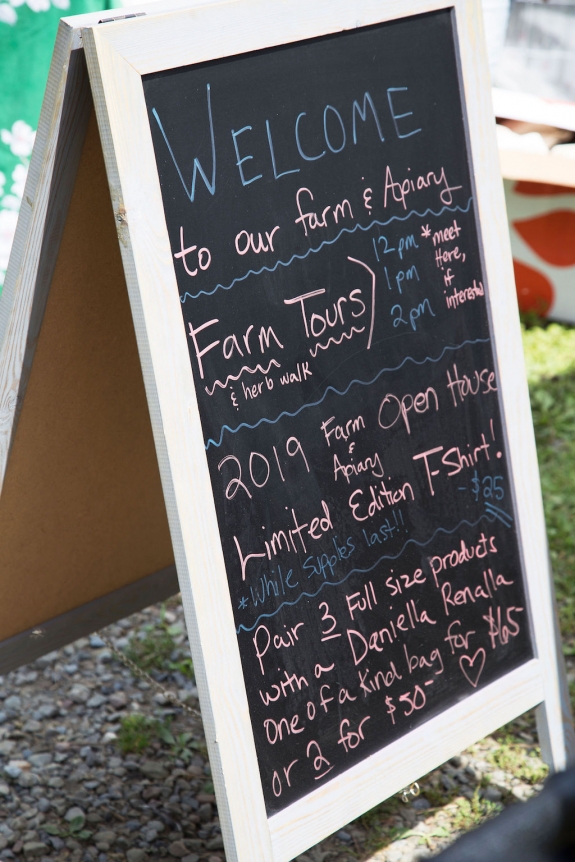 WELCOME
to our farm & Apiary
Farm Tours)
& herb walk
12pm
1pm
2pm
*meet
Here,
if
interested
2019 Farm & Apiary Open House
Limited Edition T-Shirt!
*While Supplies last!! - $25
Pair 3 Full size products
with a Daniella Renalla
one of a kind bag for $65
or 2 for $50-